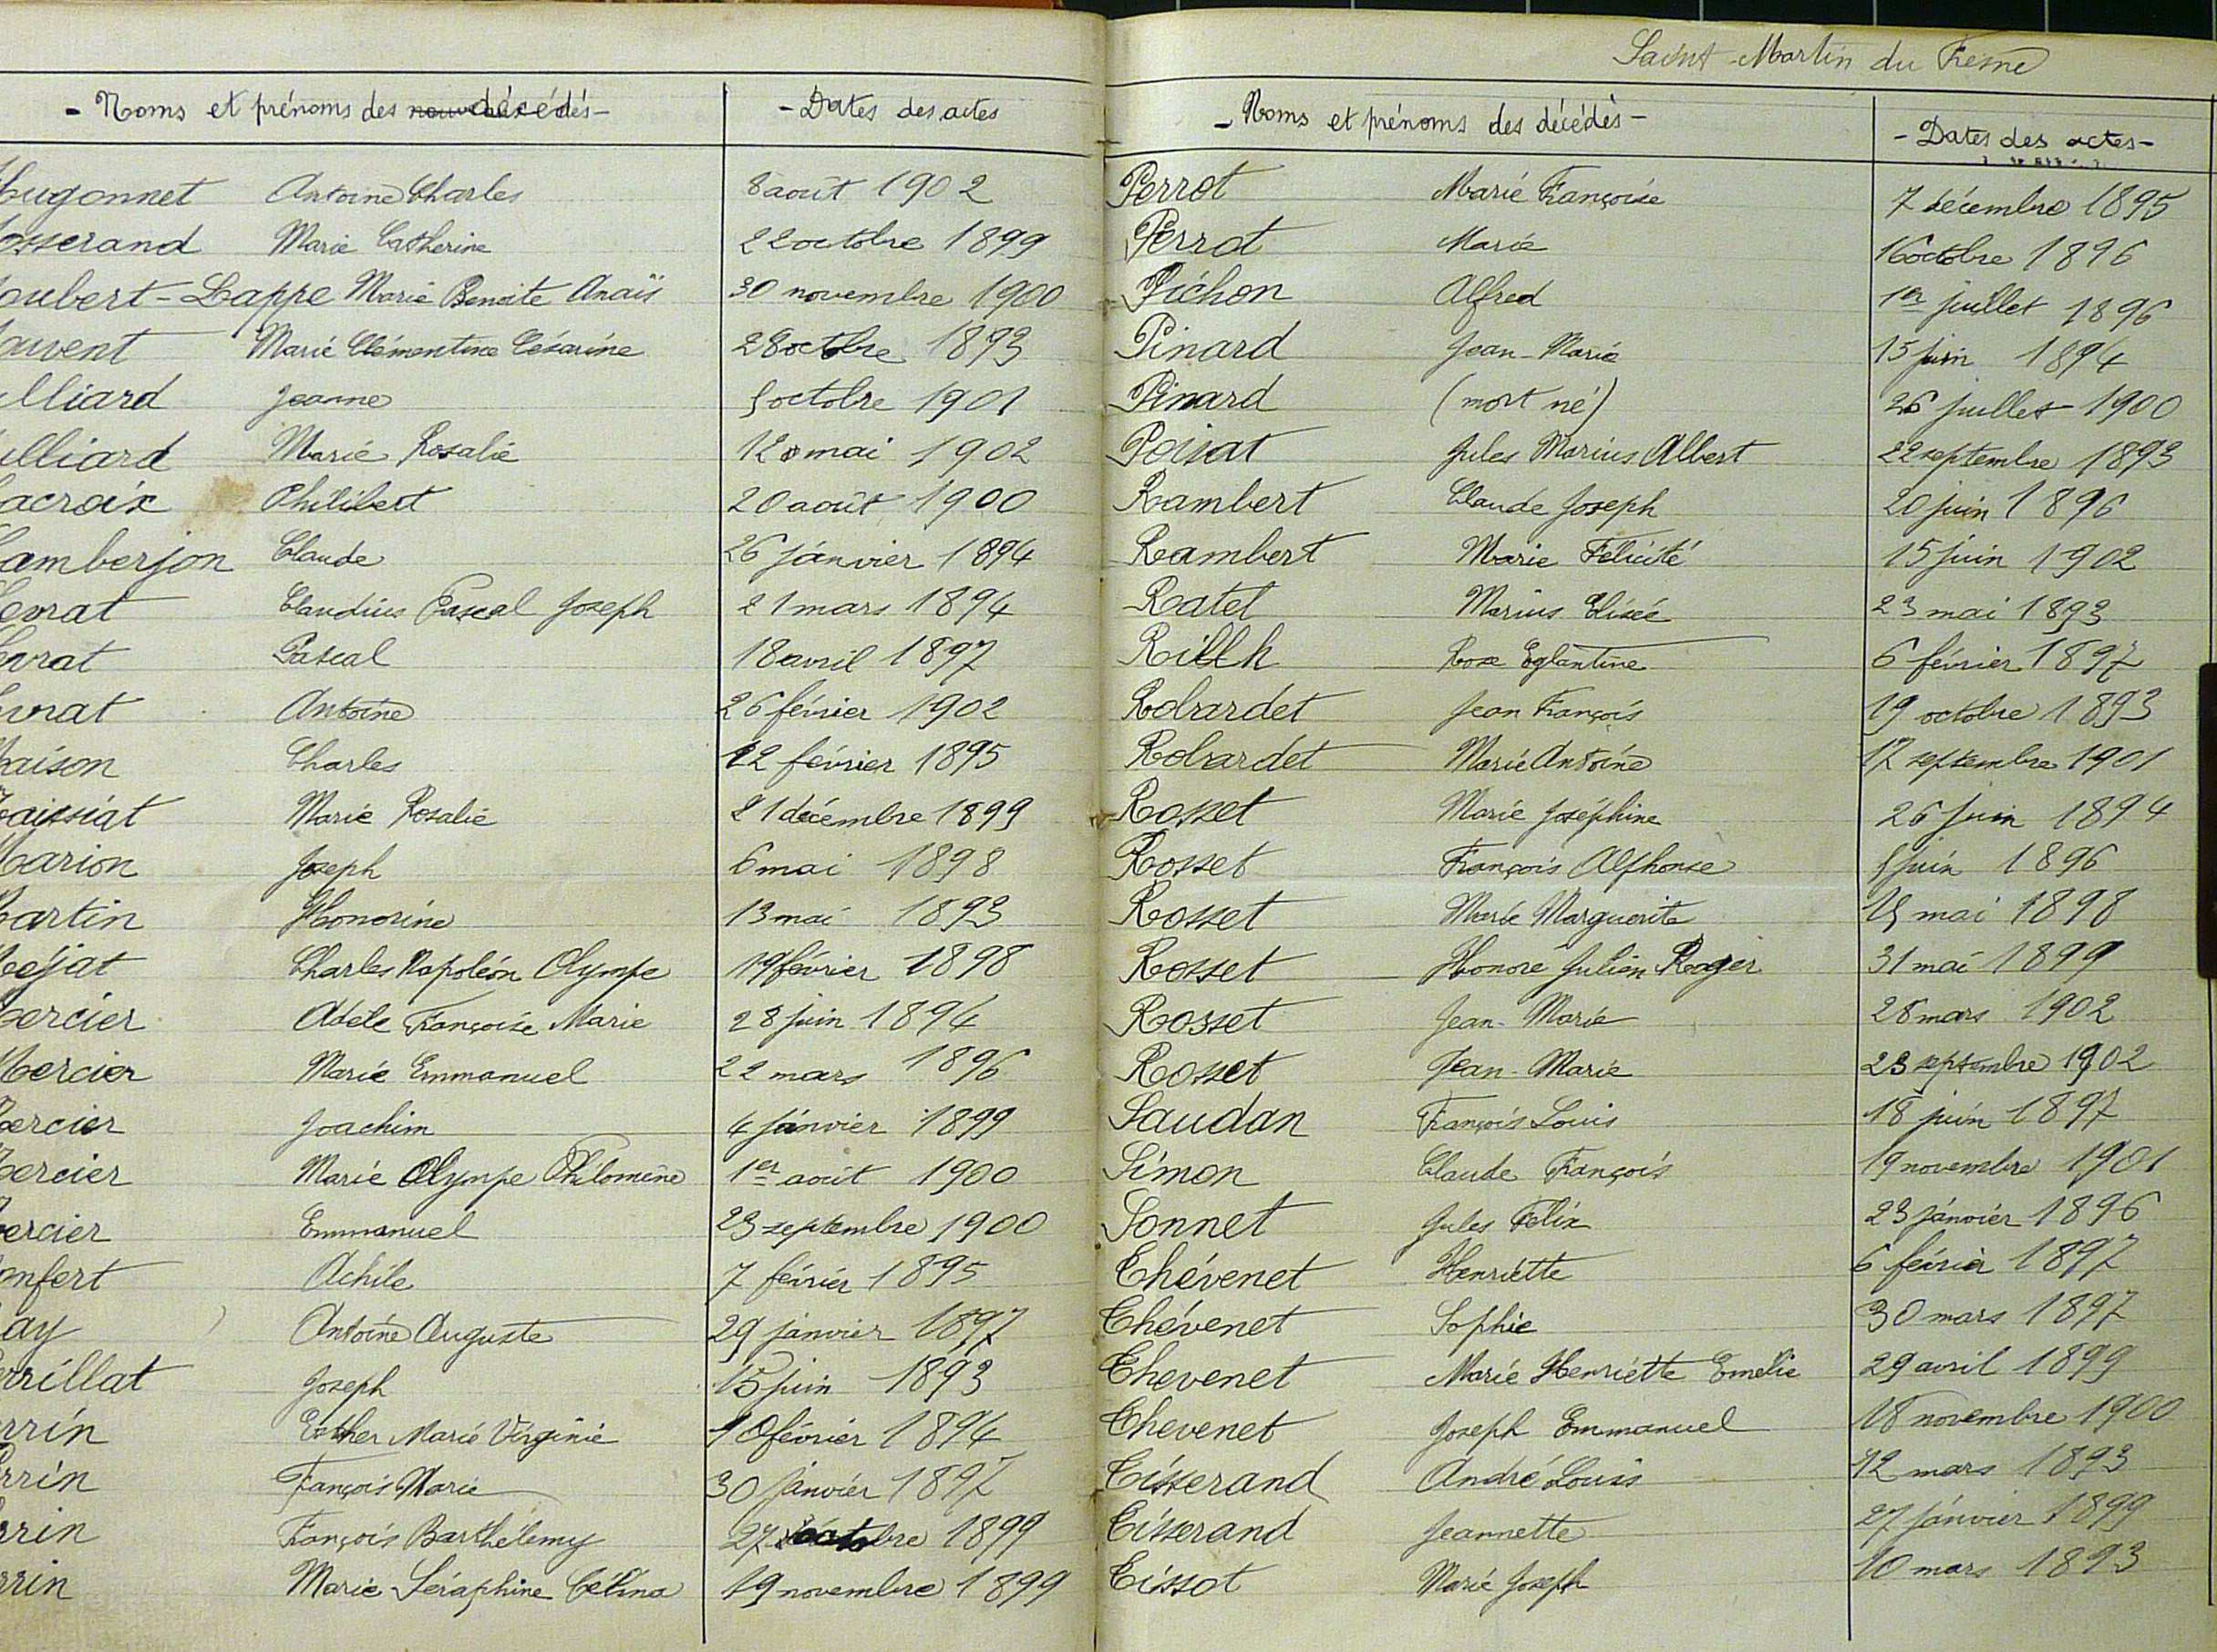 - Noms et prénoms des décédés -
- Dates des actes
Hugonnet Antoine Charles 8 août 1902
osserand Marie Catherine 22 octobre 1899
oubert-Lappe Marie Benoite Anaïs 30 novembre 1900
ouvent Marie Clémentine Césarine 28 octobre 1893
lliard Jeanne 5 octobre 1901
lliard Marie Rosalie 12 mai 1902
acroix Philibert 20 août 1900
amberjon Claude 26 janvier 1894
evrat Claudius Pascal Joseph 21 mars 1894
evrat Pascal 18 avril 1897
vrat Antoine 26 février 1902
aison Charles 12 février 1895
aissiat Marie Rosalie 21 décembre 1899
arion Joseph 6 mai 1898
artin Honorine 13 mai 1893
éjat Charles Napoléon Olympe 19 février 1898
ercier Adèle Françoise Marie 28 juin 1894
Mercier Marie Emmanuel 22 mars 1896
ercier Joachim 4 janvier 1899
ercier Marie Olympe Philomène 1er août 1900
ercier Emmanuel 23 septembre 1900
onfert Achile 7 février 1895
ay Antoine Auguste 29 janvier 1897
errillat Joseph 15 juin 1893
rrin Esther Marie Virginie 10 février 1894
rrin François Marie 30 janvier 1897
rrin François Barthélemy 27 octobre 1899
rrin Marie Séraphine Célina 19 novembre 1899
Saint-Martin du Fresne
- Noms et prénoms des décédés -
- Dates des actes -
Perrot Marie Françoise 7 décembre 1895
Perrot Marie 16 octobre 1896
Pichon Alfred 1er juillet 1896
Pinard Jean-Marie 15 juin 1894
Pinard (mort né) 26 juillet 1900
Poisat Jules Marius Albert 22 septembre 1893
Rambert Claude Joseph 20 juin 1896
Rambert Marie Félicité 15 juin 1902
Ratel Marius Elisée 23 mai 1893
Rillh Rose Eglantine 6 février 1897
Robardet Jean François 19 octobre 1893
Robardet Marie Antoine 17 septembre 1901
Rosset Marie Joséphine 26 juin 1894
Rosset François Alphonse 5 juin 1896
Rosset Marie Marguerite 15 mai 1898
Rosset Honoré Julien Roger 31 mai 1899
Rosset Jean-Marie 28 mars 1902
Rosset Jean-Marie 23 septembre 1902
Saudan François Louis 18 juin 1897
Simon Claude François 19 novembre 1901
Sonnet Jules Félix 23 janvier 1896
Thévenet Henriette 6 février 1897
Thévenet Sophie 30 mars 1897
Thevenet Marie Henriette Emélie 29 avril 1899
Thevenet Joseph Emmanuel 18 novembre 1900
Tisserand André Louis 12 mars 1893
Tisserand Jeannette 27 janvier 1899
Tissot Marie Joseph 10 mars 1893